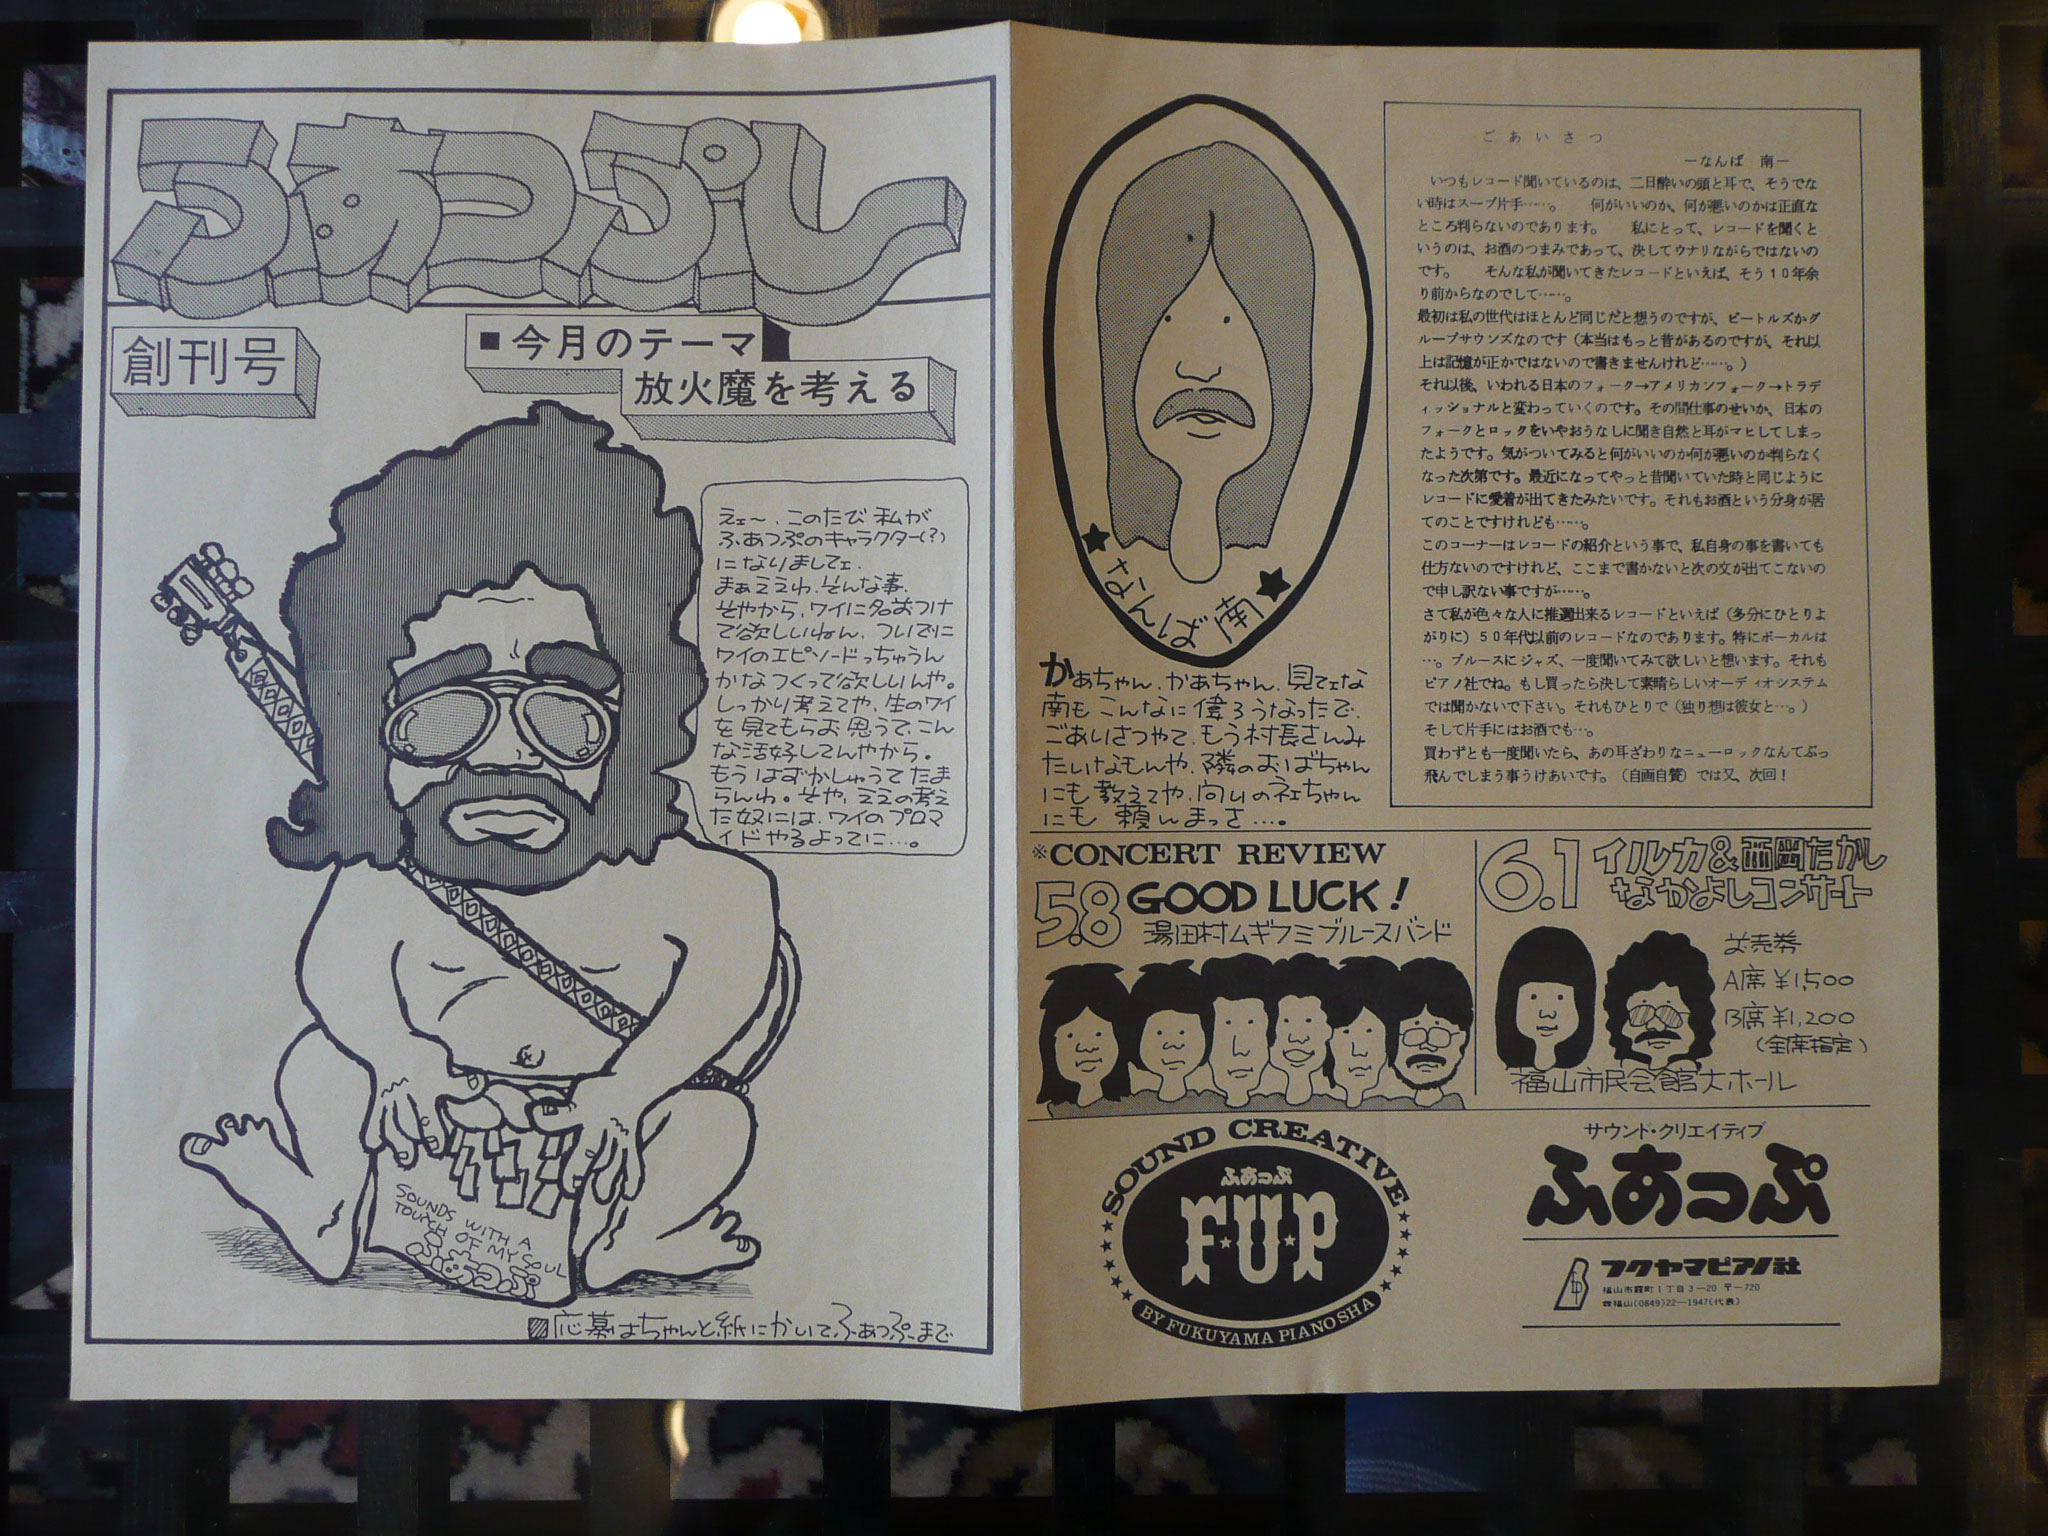 ふあつぷし
創刊号
■今月のテーマ
放火魔を考える
えェ〜、このたび私が
ふあつぷのキャラクター(?)
になりましてェ、
まぁええわ、そんな事、
そやから、ワイに名前つけ
て欲しいねん、ついでに
ワイのエピソードっちゅうん
かなつくって欲しいんや。
しっかり考えてや、生のワイ
を見てもらお思うて、こん
な活好してんやから。
もうはずかしゅうてたま
らんわ。そや、ええの考え
た奴には、ワイのプロマ
イドやるよってに…。
SOUNDS WITH A
TOUCH OF MY SOUL
ふあつぷ
応募はちゃんと紙にかいてふあつぷまで
★なんば南★
かあちゃん、かあちゃん、見てェな
南もこんなに偉ろうなったで、
ごあいさつやて、もう村長さんみ
たいなもんや、隣のおばちゃん
にも教えてや、向いのネェちゃん
にも頼んまっさ…。
ごあいさつ
―なんば 南―
いつもレコード聞いているのは、二日酔いの頭と耳で、そうでな
い時はスープ片手……。 何がいいのか、何が悪いのかは正直な
ところ判らないのであります。 私にとって、レコードを聞くと
いうのは、お酒のつまみであって、決してウナリながらではないの
です。 そんな私が聞いてきたレコードといえば、そう10年余
り前からなのでして……。
最初は私の世代はほとんど同じだと想うのですが、ビートルズかグ
ループサウンズなのです(本当はもっと昔があるのですが、それ以
上は記憶が正かではないので書きませんけれど……。)
それ以後、いわれる日本のフォーク→アメリカンフォーク→トラデ
ィッショナルと変わっていくのです。その間仕事のせいか、日本の
フォークとロックをいやおうなしに聞き自然と耳がマヒしてしまっ
たようです。気がついてみると何がいいのか何が悪いのか判らなく
なった次第です。最近になってやっと昔聞いていた時と同じように
レコードに愛着が出てきたみたいです。それもお酒という分身が居
てのことですけれども……。
このコーナーはレコードの紹介という事で、私自身の事を書いても
仕方ないのですけれど、ここまで書かないと次の文が出てこないの
で申し訳ない事ですが……。
さて私が色々な人に推選出来るレコードといえば(多分にひとりよ
がりに)50年代以前のレコードなのであります。特にボーカルは
…。ブルースにジャズ、一度聞いてみて欲しいと想います。それも
ピアノ社でね。もし買ったら決して素晴らしいオーディオシステム
では聞かないで下さい。それもひとりで(独り想は彼女と…。)
そして片手にはお酒でも…。
買わずとも一度聞いたら、あの耳ざわりなニューロックなんてぶっ
飛んでしまう事うけあいです。(自画自賛)では又、次回!
※CONCERT REVIEW
5.8 GOOD LUCK!
湯田村ムギフミブルースバンド
6.1 イルカ&西岡たかし
なかよしコンサート
前売券
A席¥1,500
B席¥1,200
(全席指定)
福山市民会館大ホール
SOUND CREATIVE
ふあっぷ
F・U・P
BY FUKUYAMA PIANOSHA
サウンド・クリエイティブ
ふあっぷ
フクヤマピアノ社
福山市霞町1丁目3―20 〒―720
☎福山(0849)22―1947(代表)